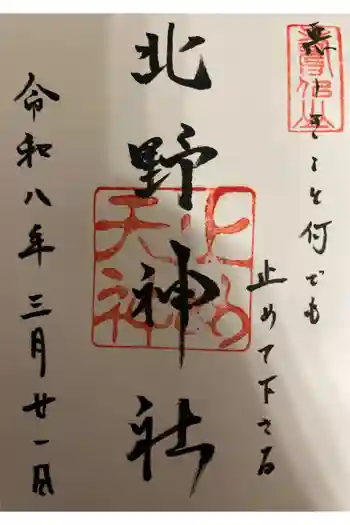 悪しきこと何でも
止めて下さる
北野神社
止め天神
令和八年三月廿一日